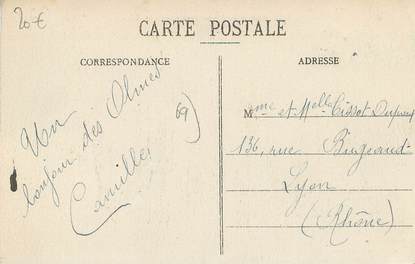 20 €
CARTE POSTALE
CORRESPONDANCE
ADRESSE
Un
bonjour des Olmes
69)
Camille
Mme et Melle Tissot Dupuy
136, rue Bugeaud
Lyon
(Rhône)